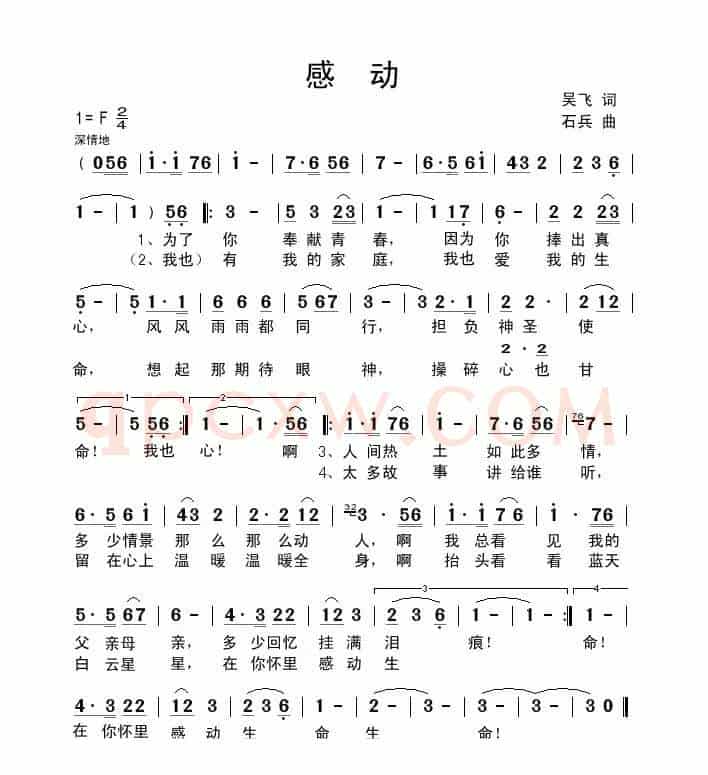 感 动
吴飞 词
1= F 2/4
石兵 曲
深情地
( 056 | i · i 76 | i - | 7 · 6 56 | 7 - | 6 · 5 6i | 432 | 2 3 6 |
1 - | 1 ) 56 ‖: 3 - | 5 3 23 | 1 - | 1 17 | 6 - | 2 2 23 |
1、为了 你 奉 献 青 春， 因为 你 捧 出 真
(2、我也) 有 我 的 家 庭， 我也 爱 我 的 生
5 - | 5 1 · 1 | 6 6 6 | 5 67 | 3 - | 3 2 · 1 | 2 2 · | 2 12 |
心， 风 风 雨 雨 都 同 行， 担 负 神 圣 使
2 · 2
命， 想 起 那 期 待 眼 神， 操 碎 心 也 甘
1 2
5 - | 5 56 :‖ 1 - | 1 · 56 ‖: i · i 76 | i - | 7 · 6 56 | 76 7 - |
命！ 我也 心！ 啊 3、人 间 热 土 如 此 多 情，
4、太 多 故 事 讲 给 谁 听，
qpcxw.COM
6 · 5 6i | 43 2 | 2 · 2 12 | 32 3 · 56 | i · i 76 | i · 76 |
多 少 情 景 那 么 那 么 动 人，啊 我 总 看 见 我的
留 在 心 上 温 暖 温 暖 全 身，啊 抬 头 看 看 蓝天
3 4
5 · 5 67 | 6 - | 4 · 3 22 | 12 3 | 2 3 6 | 1 - | 1 - :‖ 1 - |
父 亲 母 亲， 多 少 回 忆 挂 满 泪 痕！ 命！
白 云 星 星， 在 你 怀 里 感 动 生
4 · 3 22 | 12 3 | 2 3 6 | 1 - | 2 - | 3 - | 3 - | 3 0 ‖
在 你 怀 里 感 动 生 命 生 命！